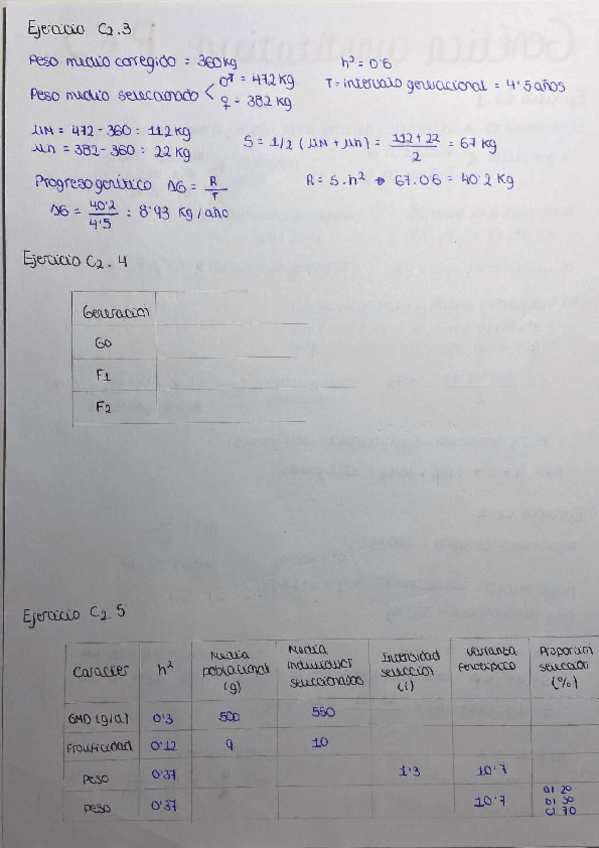 Ejercicio C2.3
Peso medio corregido = 360 kg h² = 0'6
Peso medio seleccionado < ♂ = 472 kg T = intervalo generacional = 4'5 años
♀ = 382 kg
μM = 472 - 360 = 112 kg S = 1/2 (μM + μh) = 112 + 22 / 2 = 67 kg
μh = 382 - 360 = 22 kg
Progreso genético ΔG = R/T R = S · h² → 67 · 0'6 = 40'2 kg
ΔG = 40'2 / 4'5 = 8'93 kg/año
Ejercicio C2.4
Generación
G0
F1
F2
Ejercicio C2.5
Carácter h² Media poblacional (g) Media individuos seleccionados Intensidad selección (i) Varianza fenotípica Proporción selección (%)
GMD (g/d) 0'3 500 550
Prolificidad 0'12 9 10
Peso 0'37 1'3 10'7
Peso 0'37 10'7 a) 20
b) 50
c) 70